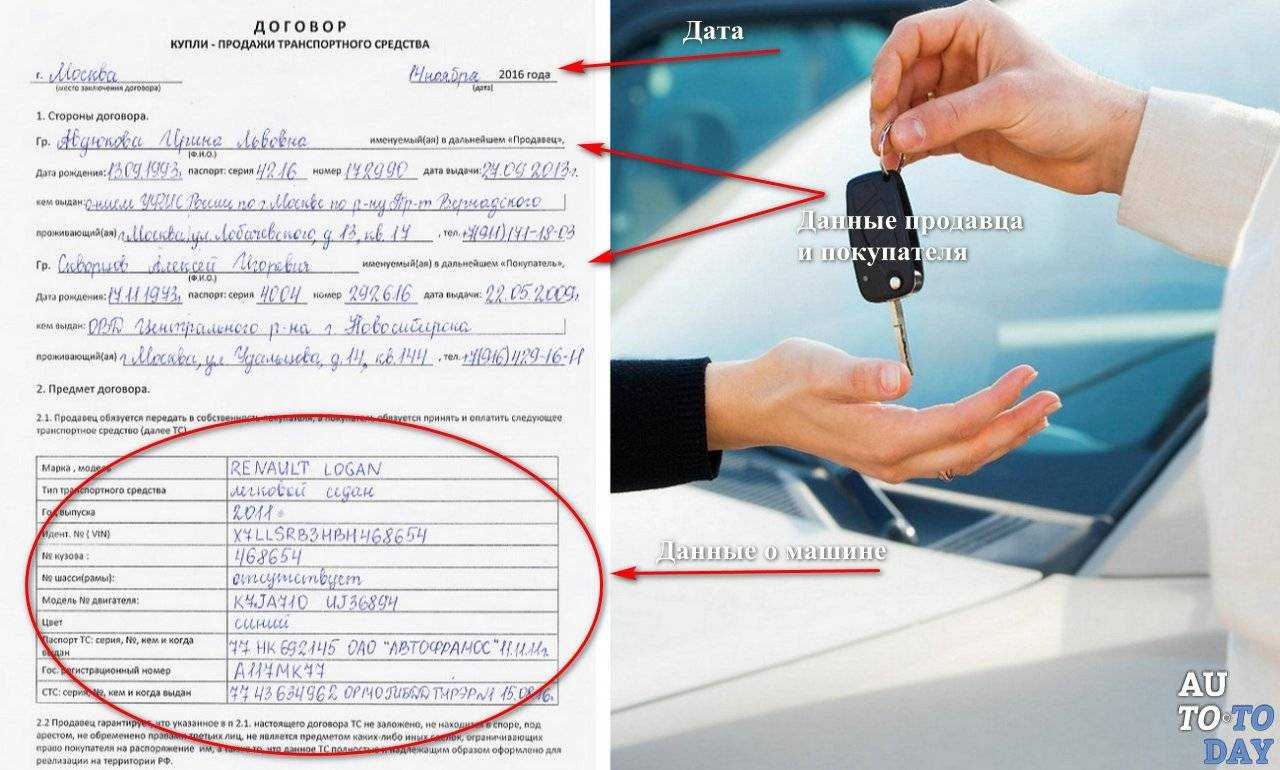 ДОГОВОР
КУПЛИ - ПРОДАЖИ ТРАНСПОРТНОГО СРЕДСТВА
г. Москва 14 ноября 2016 года
(место заключения договора) (дата)
1. Стороны договора.
Гр. Авдюкова Ирина Львовна именуемый(ая) в дальнейшем «Продавец»,
(Ф.И.О.)
Дата рождения: 13.09.1993, паспорт: серия 4216 номер 172990 дата выдачи: 27.09.2013 г.
кем выдан: отделом УФМС России по г. Москве по р-ну Пр-т Вернадского
проживающий(ая) г. Москва, ул. Лобачевского, д 13, кв. 17, тел.
Гр. Скворцов Алексей Игоревич именуемый(ая) в дальнейшем «Покупатель»,
(Ф.И.О.)
Дата рождения: 17.11.1973, паспорт: серия 4004 номер 292616 дата выдачи: 22.05.2009,
кем выдан: Центрального р-на г Новосибирска
проживающий(ая) г Москва, ул. Удальцова, д. 14, кв. 144, тел.
2. Предмет договора.
2.1. Продавец обязуется передать в собственность покупателя, а покупатель обязуется принять и оплатить следующее
транспортное средство (далее ТС)
Марка, модель RENAULT LOGAN
Тип транспортного средства легковой седан
Год выпуска 2011
Идент. № (VIN) X7LLSRB3HBH468654
№ кузова : 468654
№ шасси(рамы): отсутствует
Модель № двигателя: K7JA710 UJ36894
Цвет синий
Паспорт ТС: серия, №, кем и когда выдан 77 НК 692145 ОАО "АВТОФРАМОС" 11.11.11г.
Гос. регистрационный номер А117МК77
СТС: серия, №, кем и когда выдан 77 43 634962
2.2 Продавец гарантирует, что указанное в п 2.1. настоящего договора ТС не заложено, не находится в споре, под
арестом, не обременено правами третьих лиц, не является предметом каких-либо иных сделок, ограничивающих
право покупателя на распоряжение им, а также то, что данное ТС полностью и надлежащим образом оформлено для
реализации на территории РФ.
Дата
Данные продавца
и покупателя
Данные о машине
AU
TO TO
DAY